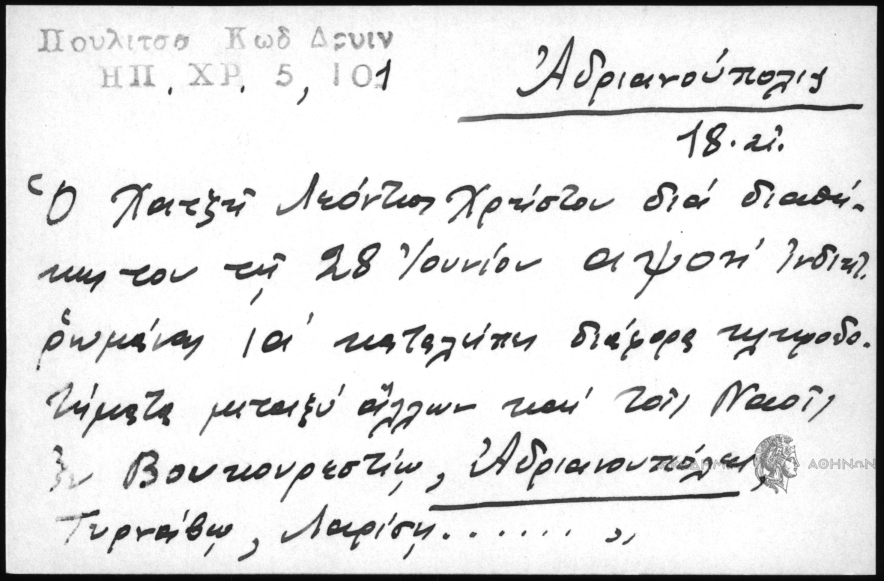 Πουλιτσα Κωδ Δρυιν
ΗΠ. ΧΡ. 5, 101
Ἀδριανούπολις
18. αἰ.
Ὁ Χατζῆ Λεόντιος Χρήστου διά διαθή-
κης του τῇ 28 Ἰουνίου αψοη' Ἰνδικτ.
ῥωμάνας ια' καταλείπει διάφορα κληροδο-
τήματα μεταξύ ἄλλων καί τοῖς Ναοῖς
ἐν Βουκουρεστίῳ, Ἀδριανουπόλει,
Τυρνάβῳ, Λαρίσῃ.......,,
ΑΘΗΝΩΝ